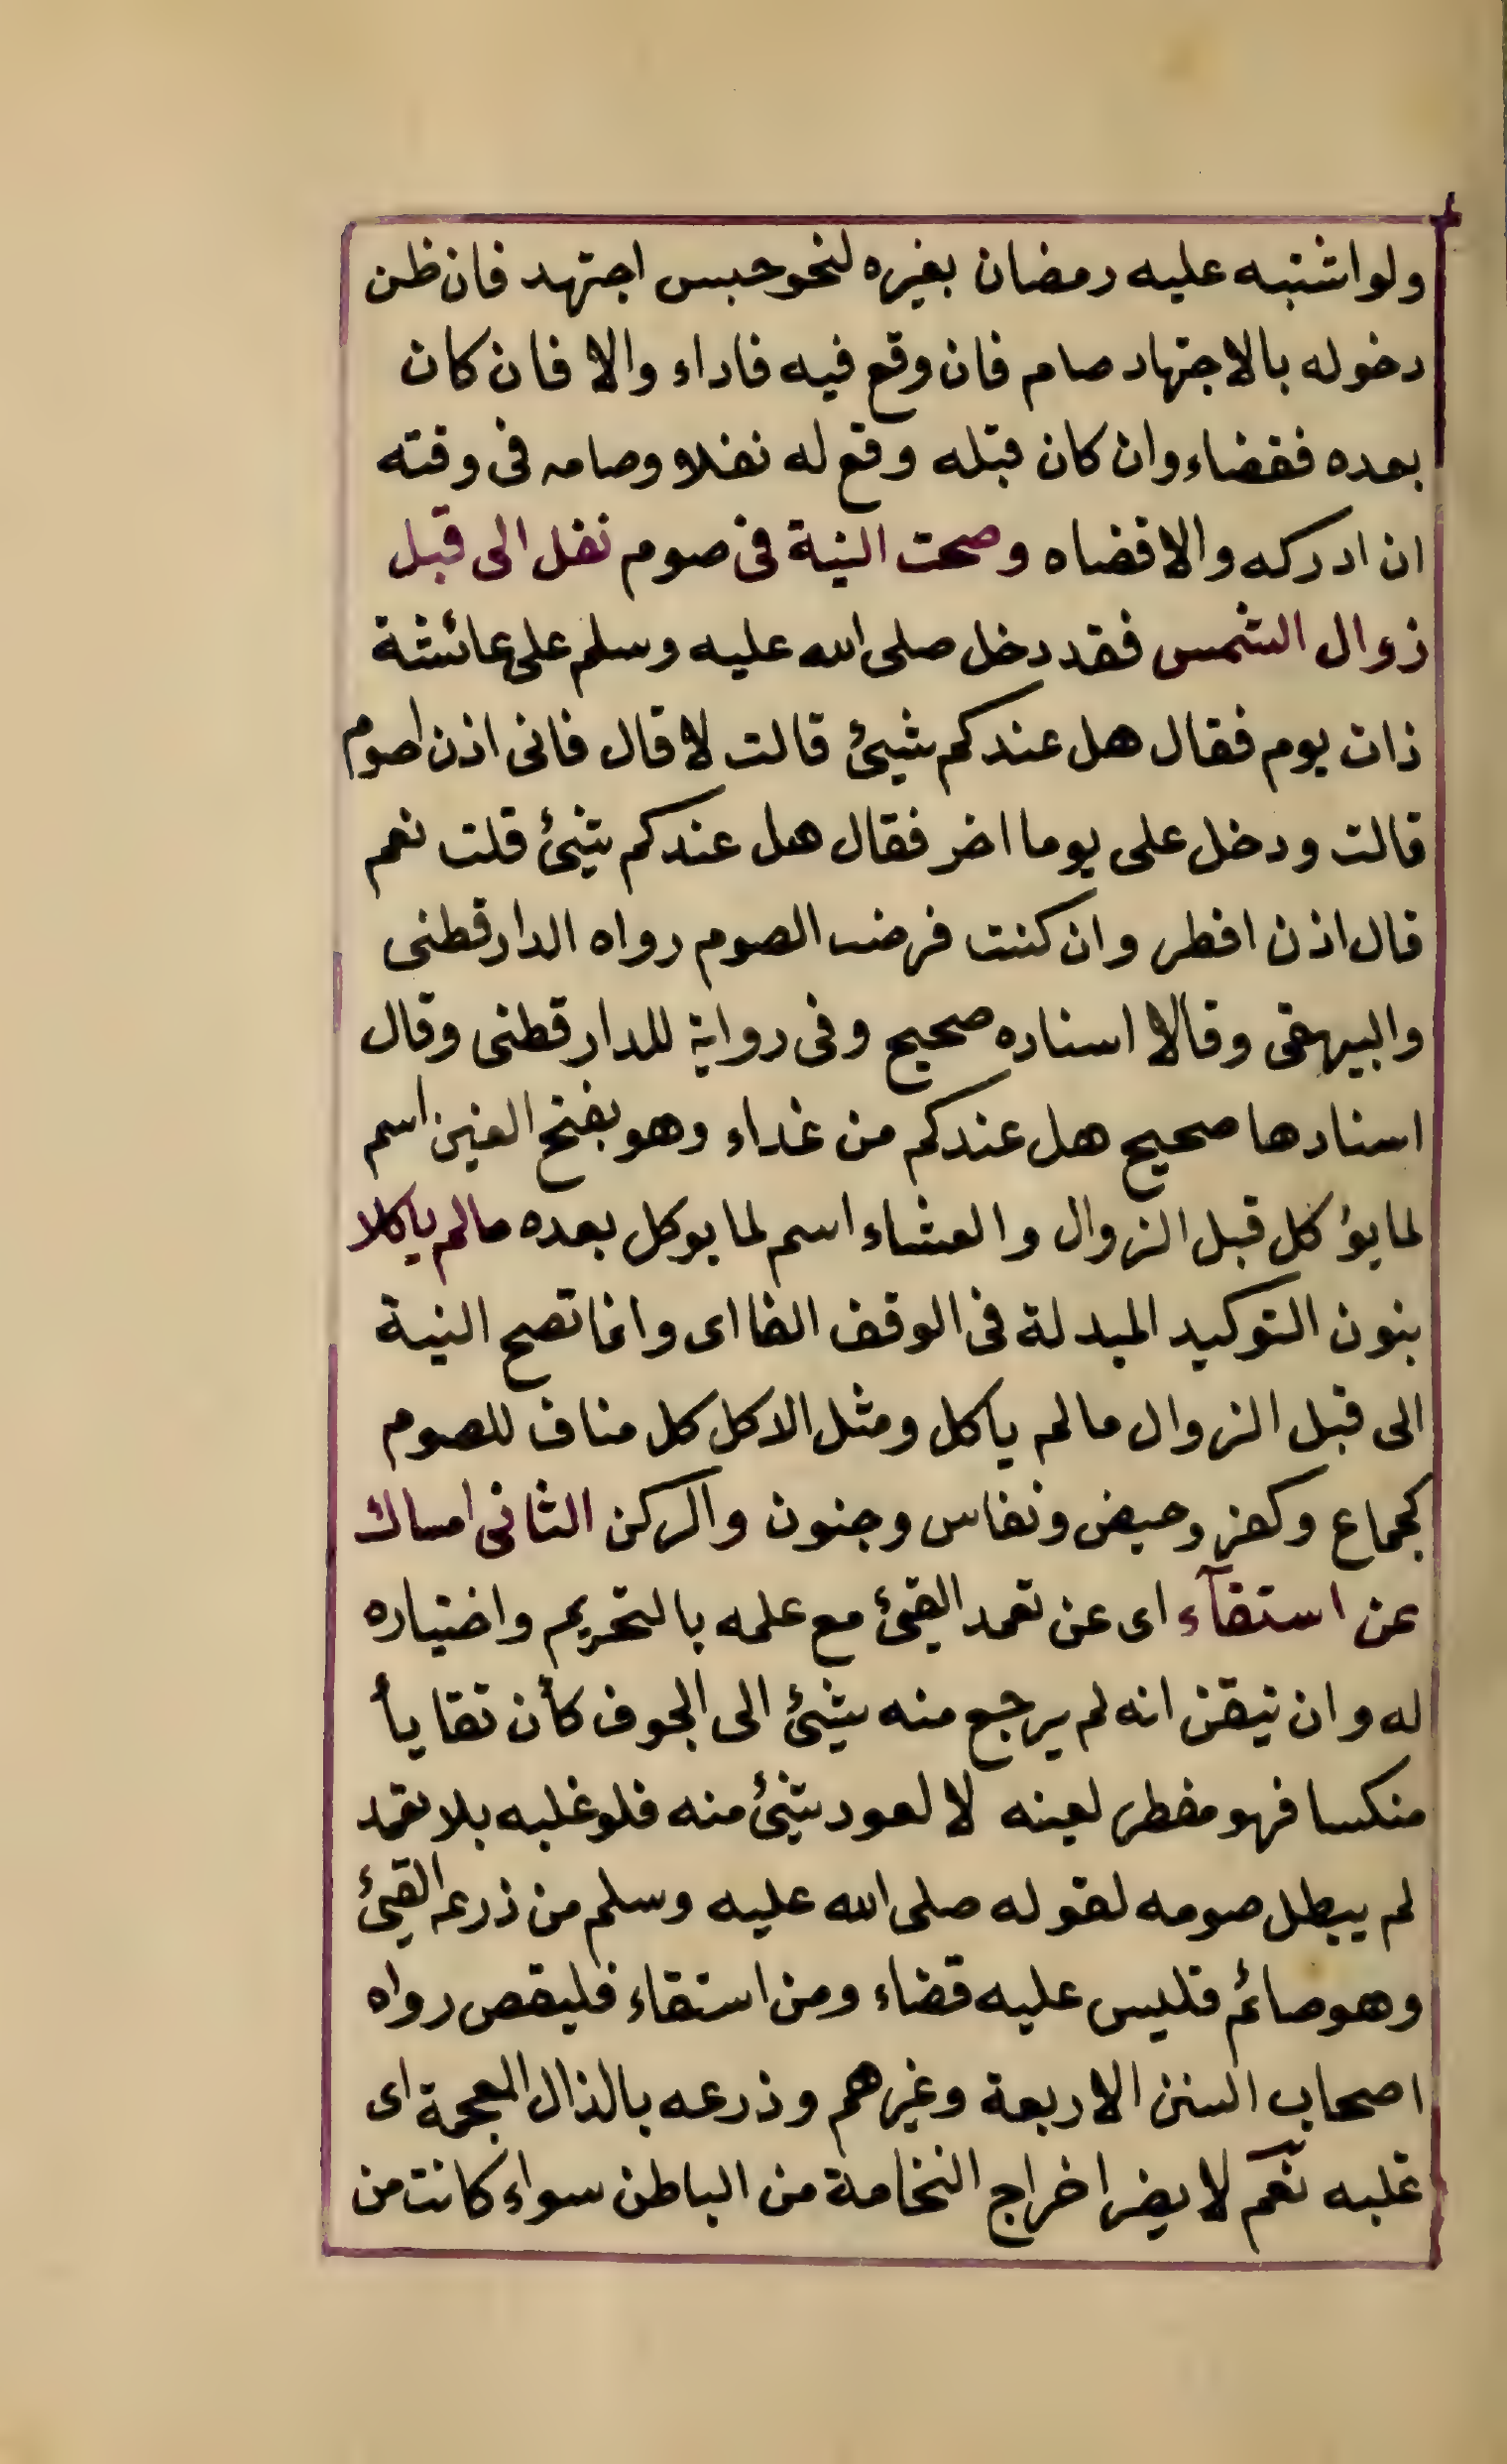 ولواشتبه عليه رمضان بغيره لنحوحبس اجتهد فان ظن
دخوله بالاجتهاد صام فان وقع فيه فاداء والا فان كان
بعده فقضاء وان كان قبله وقع له نفلا وصامه فى وقته
ان ادركه والاقضاه وصحت النية فى صوم نفل الى قبل
زوال الشمس فقد دخل صلى الله عليه وسلم على عائشة
ذات يوم فقال هل عندكم شيئ قالت لا قال فانى اذن اصوم
قالت ودخل على يوما اخر فقال هل عندكم شيئ قلت نعم
قال اذن افطر وان كنت فرضت الصوم رواه الدارقطنى
والبيهقى وقالا اسناده صحيح وفى رواية للدارقطنى وقال
اسنادها صحيح هل عندكم من غداء وهو بفتح الغين اسم
لما يؤكل قبل الزوال والعشاء اسم لما يوكل بعده مالم ياكلا
بنون التوكيد المبدلة فى الوقف الفا اى وانما تصح النية
الى قبل الزوال مالم ياكل ومثل الاكل كل مناف للصوم
كجماع وكفر وحيض ونفاس وجنون والركن الثانى امساك
عن استقآء اى عن تعمد القيئ مع علمه بالتحريم واختياره
له وان تيقن انه لم يرجع منه شيئ الى الجوف كأن تقايأ
منكسا فهو مفطر لعينه لا لعود شيئ منه فلو غلبه بلا تعمد
لم يبطل صومه لقوله صلى الله عليه وسلم من ذرعه القيئ
وهو صائم فليس عليه قضاء ومن استقاء فليقض رواه
اصحاب السنن الاربعة وغيرهم وذرعه بالذال المعجمة اى
غلبه نعم لا يضر اخراج النخامة من الباطن سواء كانت من